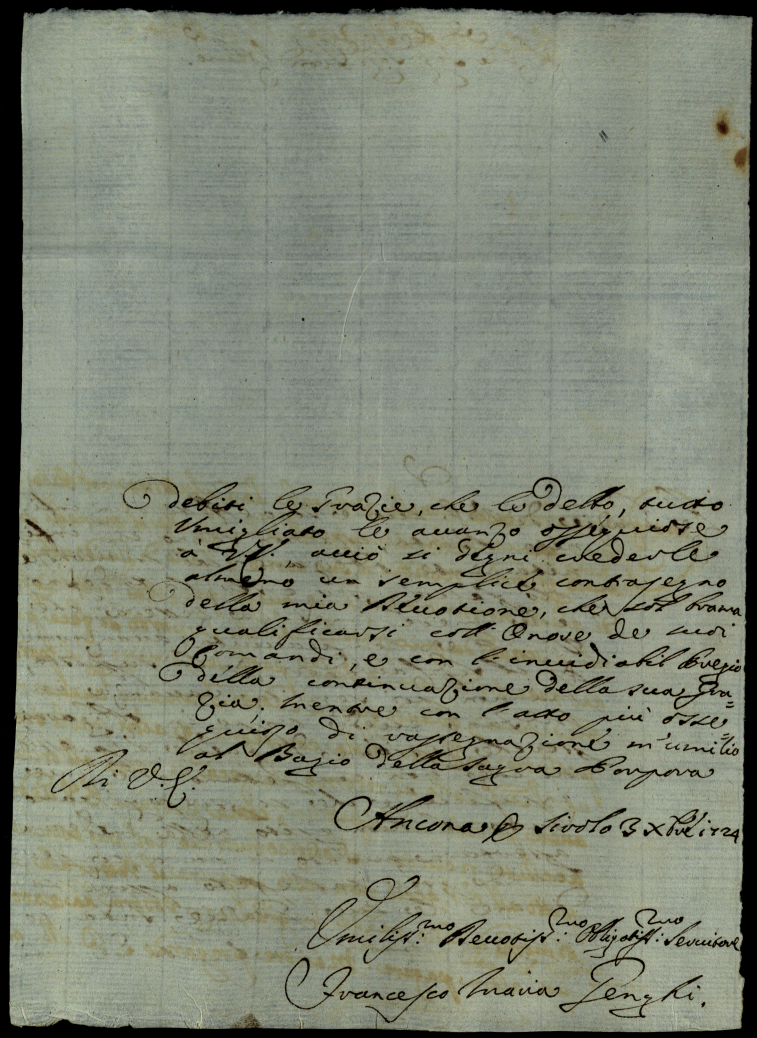 debiti le Grazie, che le detto, tutto
Umigliato le auanzo ossequiose
à V. E., acciò si degni crederle
almeno un semplice contrasegno
della mia Deuotione, che sol brama
qualificarsi coll' Onore de suoi
Comandi, e con l'inuidiabil Preggio
della continuazione della sua Gra=
zia, mentre con l'atto più osse=
quioso di rassegnazione m'umilio
al Bagio della Sagra Porpora
Di V. E.
Ancona Sirolo 3 Xbre 1724
Umiliss:mo Deuotiss:mo Obligatiss:mo Seruitore
Francesco Maria Penghi.